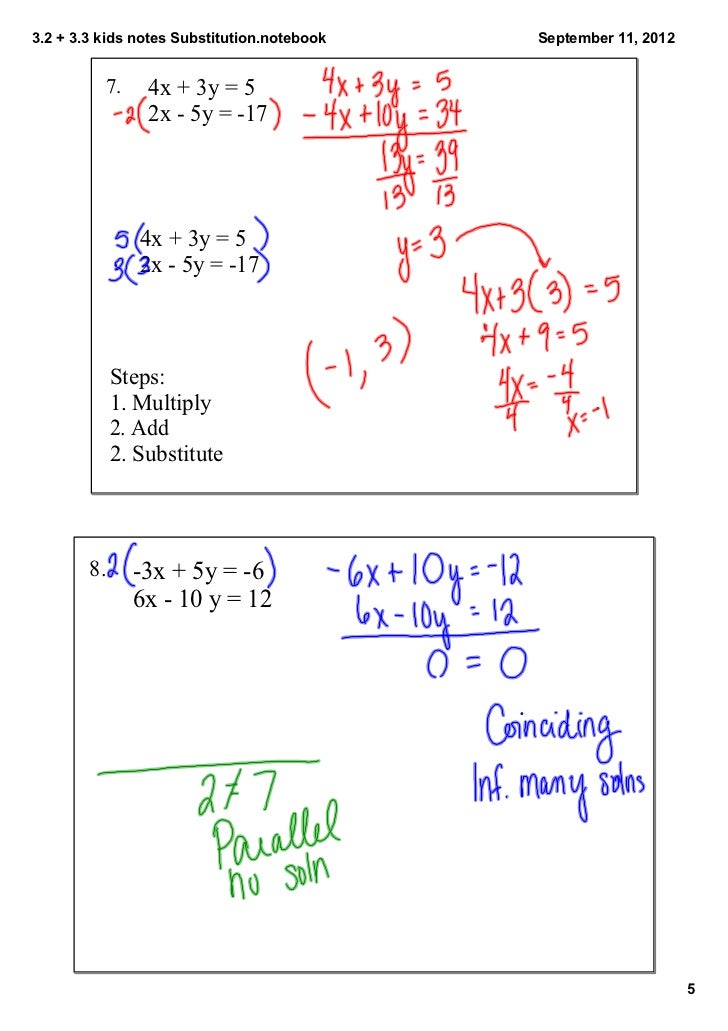 3.2 + 3.3 kids notes Substitution.notebook
September 11, 2012
7. 4x + 3y = 5
-2( 2x - 5y = -17 )
4x + 3y = 5
- 4x + 10y = 34
13y = 39
13 13
y = 3
5( 4x + 3y = 5 )
3( 2x - 5y = -17 )
4x + 3(3) = 5
4x + 9 = 5
4x = -4
4 4
x = -1
(-1, 3)
Steps:
1. Multiply
2. Add
2. Substitute
8. 2( -3x + 5y = -6 )
6x - 10 y = 12
-6x + 10y = -12
6x - 10y = 12
0 = 0
Coinciding
Inf. many solns
2 ≠ 7
Parallel
no soln
5